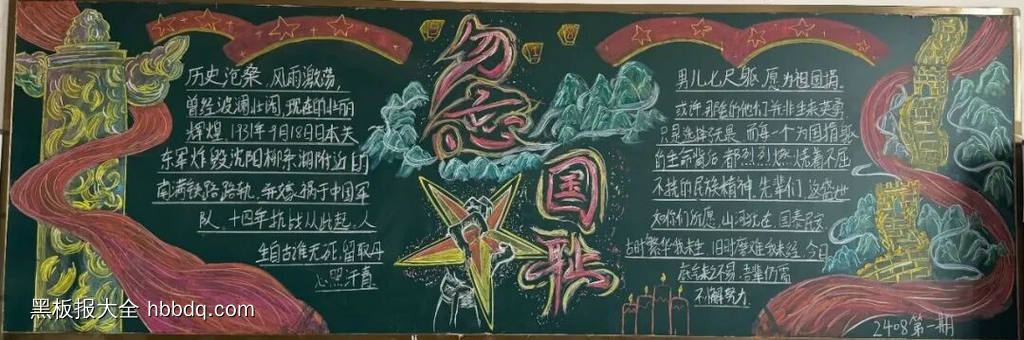 勿忘
国耻
9 18
历史沧桑,风雨激荡,
曾经波澜壮阔,现在的壮丽
辉煌 1931年9月18日日本关
东军炸毁沈阳柳条湖附近的
南满铁路路轨,并嫁祸于中国军
队,十四年抗战从此起,人
生自古谁无死,留取丹
心照汗青
男儿七尺躯 愿为祖国捐。
或许那些的他们并非生来英勇
只是选择无畏 而每一个为国捐躯
的生命背后 都烈烈燃烧着不屈
不挠的民族精神。先辈们 这盛世
如你们所愿 山河犹在 国泰民安
古时繁华我未生 旧时磨难我未经 今日
吾辈仍需
不懈努力
2408第一期
黑板报大全 hbbdq.com